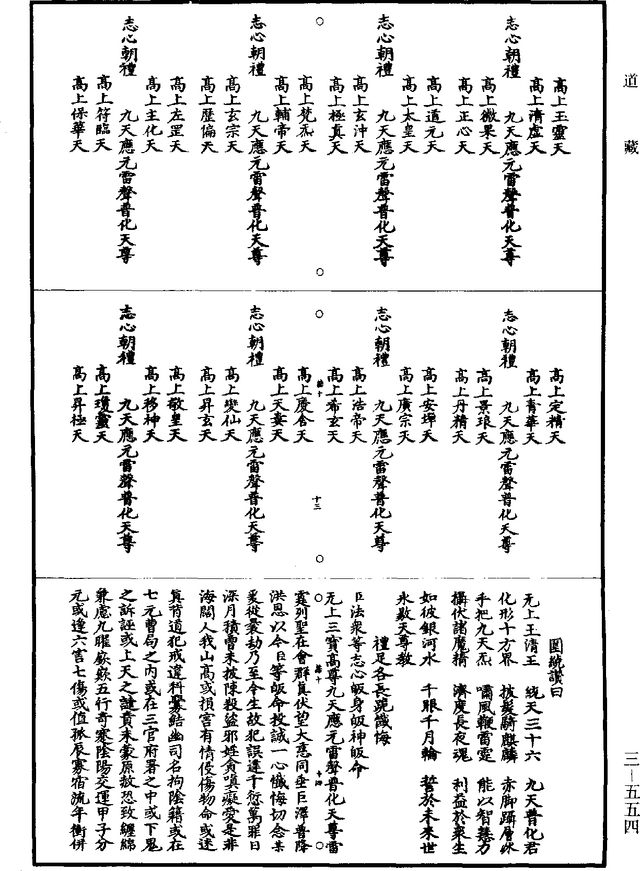 道藏
高上玉靈天
高上清虛天
志心朝禮　九天應元雷聲普化天尊
高上微果天
高上正心天
高上道元天
高上太皇天
志心朝禮　九天應元雷聲普化天尊
高上玄沖天
高上極真天
高上梵炁天
高上輔帝天
志心朝禮　九天應元雷聲普化天尊
高上玄宗天
高上歷倫天
高上左罡天
高上主化天
志心朝禮　九天應元雷聲普化天尊
高上符臨天
高上保華天
高上定精天
高上青華天
志心朝禮　九天應元雷聲普化天尊
高上景琅天
高上丹精天
高上安墀天
高上廣宗天
志心朝禮　九天應元雷聲普化天尊
高上浩帝天
高上希玄天
十三
高上慶舍天
高上天婁天
志心朝禮　九天應元雷聲普化天尊
高上變仙天
高上昇玄天
高上敬皇天
高上移神天
志心朝禮　九天應元雷聲普化天尊
高上瓊靈天
高上昇極天
圓統讚曰
无上玉清王　統天三十六　九天普化君
化形十方界　披髮騎麒麟　赤脚躡層冰
手把九天炁　嘯風鞭雷霆　能以智慧力
攝伏諸魔精　濟度長夜魂　利益於衆生
如彼銀河水　千眼千月輪　誓於未來世
永敭天尊教
禮足各長跪懺悔
臣法衆等志心皈身皈神皈命
无上三寶高尊九天應元雷聲普化天尊雷
十四
霆列聖在會群真伏望大慈同垂巨澤普降
洪恩以今臣等皈命投誠一心懺悔切念某
衆從曩劫乃至今生故犯誤違千愆萬罪日
深月積曾未披陳殺盜邪婬貪嗔癡愛是非
海闊人我山高或損害有情侵傷物命或迷
真背道犯戒違科釁結幽司名拘陰籍或在
七元曹局之內或在三官府署之中或下鬼
之訴誣或上天之譴責未蒙原赦恐致纏綿
兼慮九曜嶔嶔五行奇蹇陰陽交運甲子分
元或逢六害七傷或值孤辰寡宿流年衝併
三—五五四